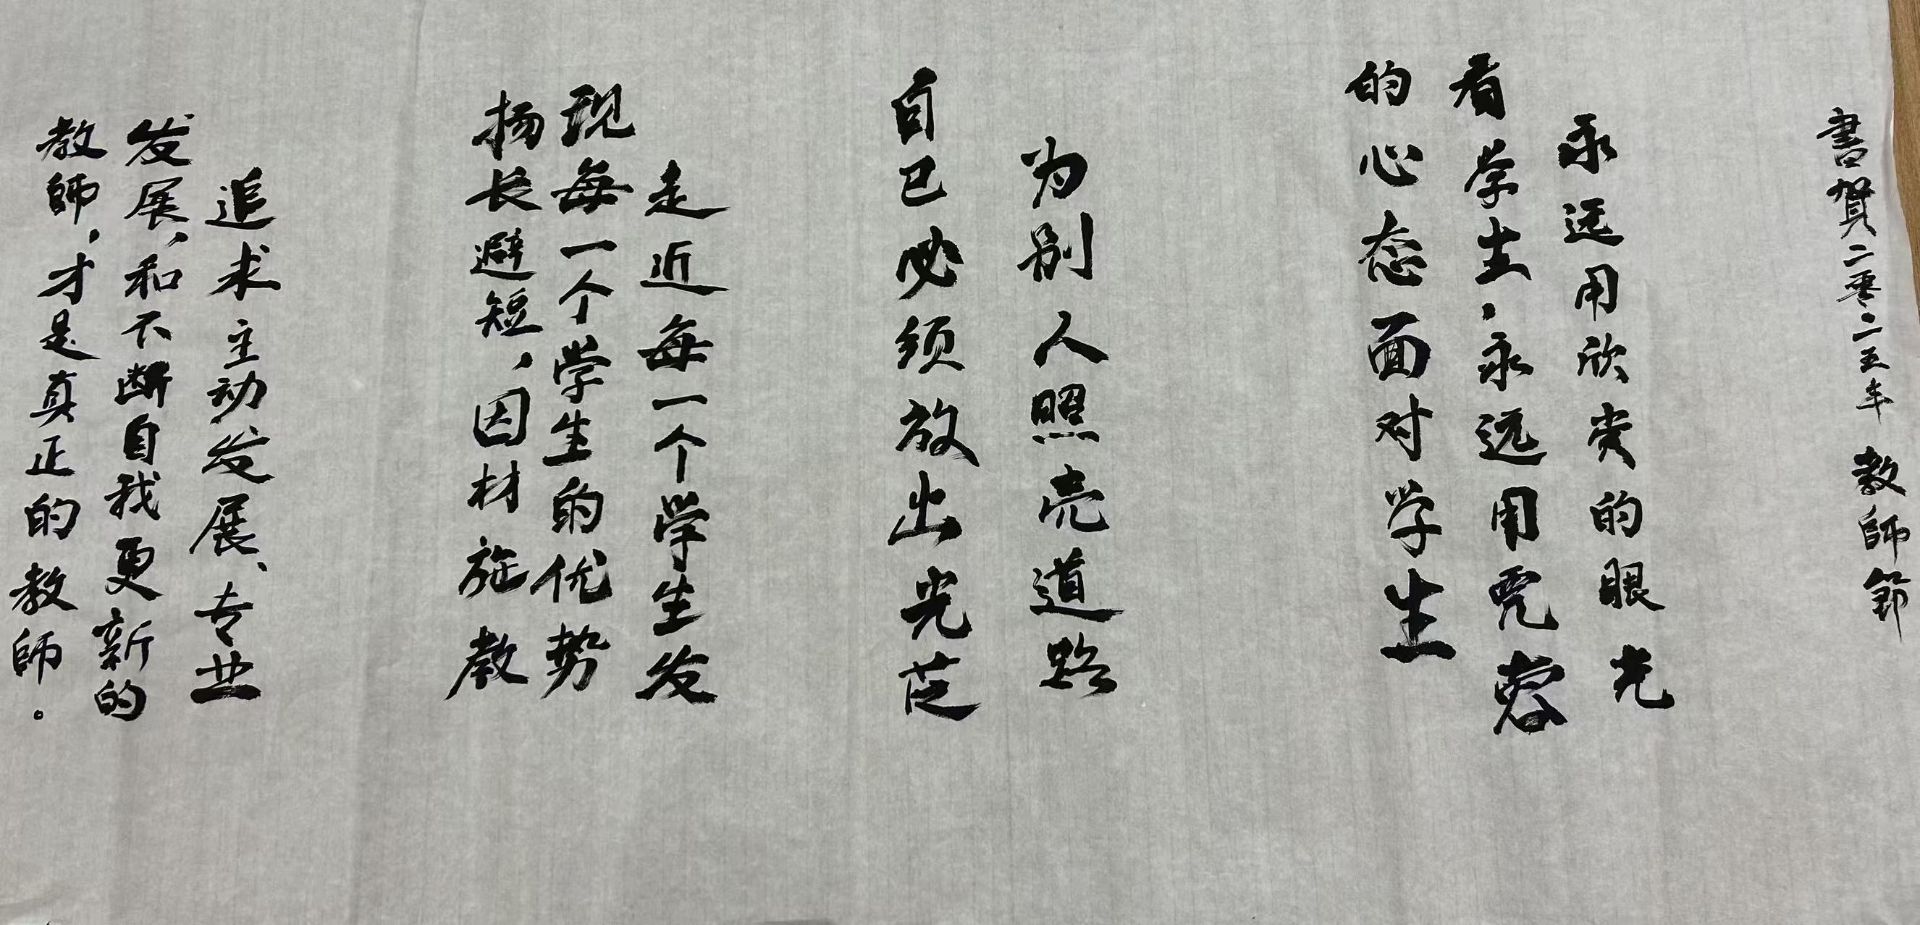 書賀二零二五年 教師節
永远用欣赏的眼光
看学生，永远用宽容
的心态面对学生
为别人照亮道路
自己必须放出光芒
走近每一个学生发
现每一个学生的优势
扬长避短，因材施教
追求主动发展、专业
发展，和不断自我更新的
教師，才是真正的教師。